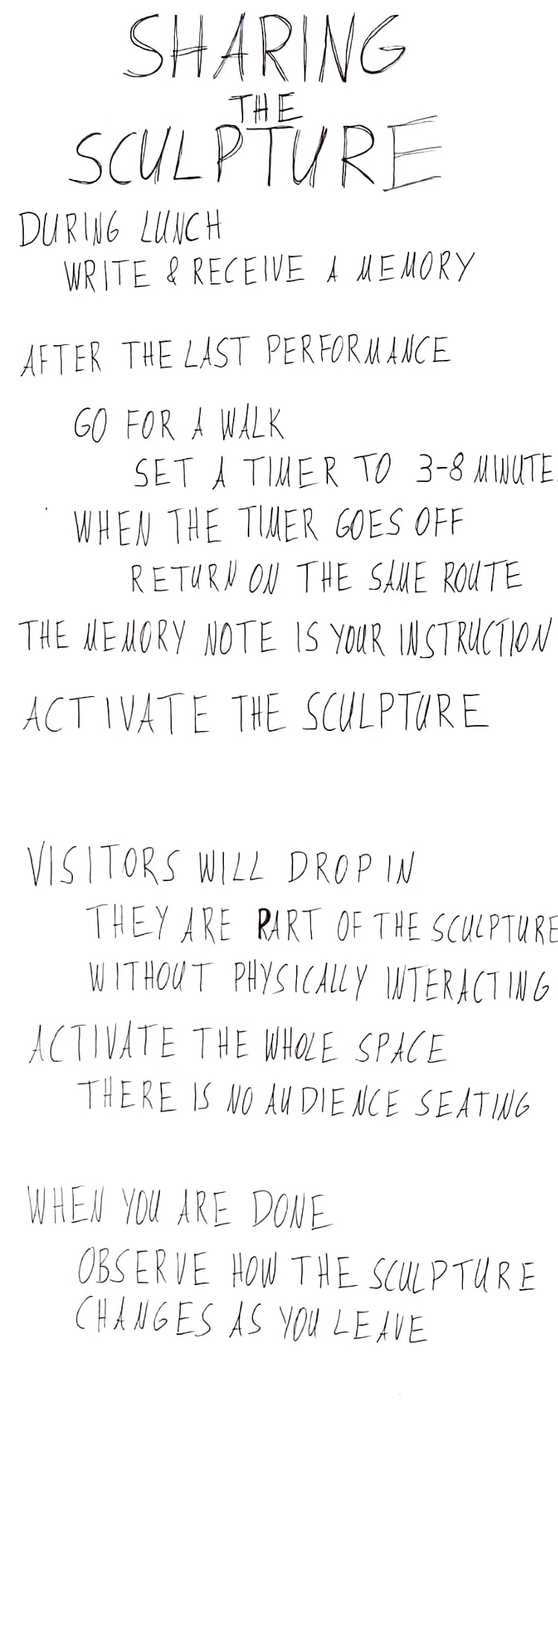 SHARING
THE
SCULPTURE
DURING LUNCH
WRITE & RECEIVE A MEMORY
AFTER THE LAST PERFORMANCE
GO FOR A WALK
SET A TIMER TO 3-8 MINUTE
WHEN THE TIMER GOES OFF
RETURN ON THE SAME ROUTE
THE MEMORY NOTE IS YOUR INSTRUCTION
ACTIVATE THE SCULPTURE
VISITORS WILL DROP IN
THEY ARE PART OF THE SCULPTURE
WITHOUT PHYSICALLY INTERACTING
ACTIVATE THE WHOLE SPACE
THERE IS NO AUDIENCE SEATING
WHEN YOU ARE DONE
OBSERVE HOW THE SCULPTURE
CHANGES AS YOU LEAVE